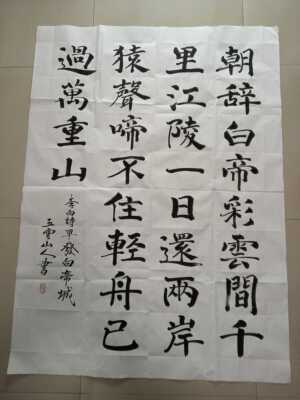 朝辭白帝彩雲間千
里江陵一日還兩岸
猿聲啼不住輕舟已
過萬重山
李白詩早發白帝城
五雲山人書